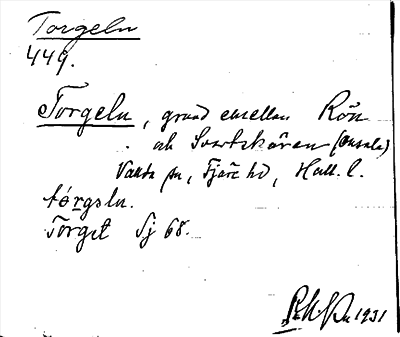 Torgeln
449.
Torgeln, grund emellan Rön
och Svartskären (Onsala)
Vallda sn, Fjäre hd, Hall. l.
tórgsln.
Torget Sj 68.
1931